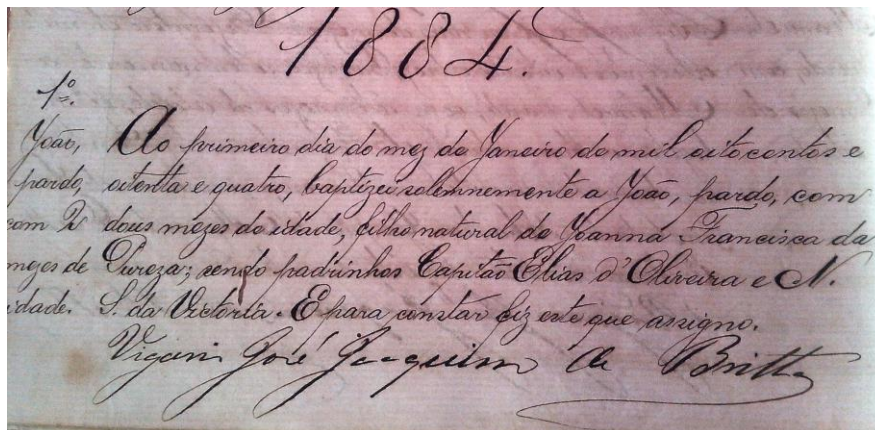 1884.
1º
João, Ao primeiro dia do mez de Janeiro de mil oitocentos e
pardo, oitenta e quatro, baptizei solemnemente a João, pardo, com
com 2 dous mezes de idade, filho natural de Joanna Francisca da
mezes de Pureza; sendo padrinhos Capitão Elias d'Oliveira e N.
idade. S. da Victoria. E para constar fiz este que assigno.
Vigario José Joaquim de Britto